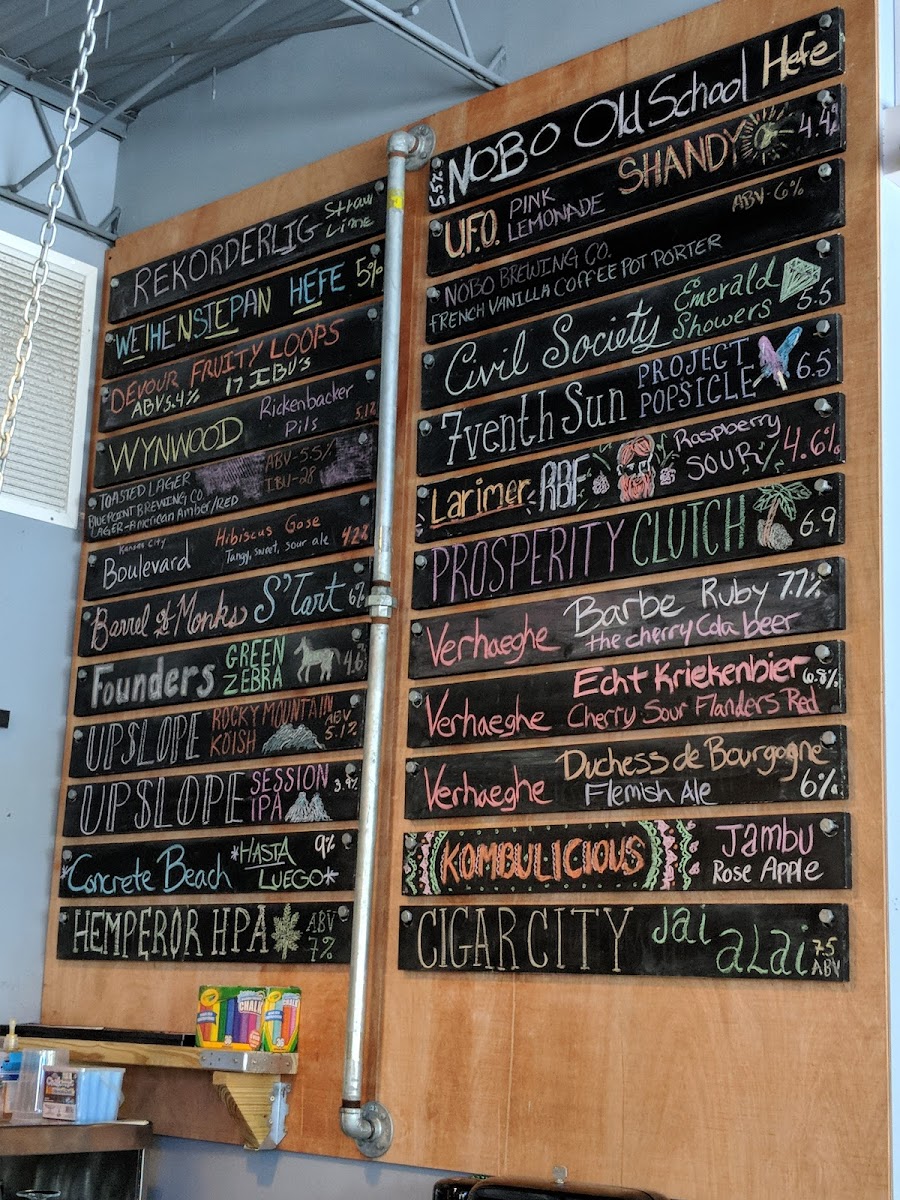 REKORDERLIG Straw Lime
WEIHENSTEPAN HEFE 5%
DEVOUR FRUITY LOOPS
ABV 5.4% 17 IBU's
WYNWOOD Rickenbacker Pils 5.1%
TOASTED LAGER ABV-5.5%
BLUEPOINT BREWING CO. IBU-28
LAGER-American Amber/Red
Kansas City
Boulevard Hibiscus Gose 4.2%
Tangy, sweet, sour ale
Barrel of Monks S'Tart 6%
Founders GREEN ZEBRA 4.6%
UPSLOPE ROCKY MOUNTAIN KÖISH ABV 5.1%
UPSLOPE SESSION IPA
*Concrete Beach *HASTA LUEGO* 9%
HEMPERØR HPA ABV 7%
5.5% NOBO Old School Hefe
U.F.O. PINK LEMONADE SHANDY 4.4%
ABV-6%
NOBO BREWING CO.
FRENCH VANILLA COFFEE POT PORTER
Civil Society Emerald Showers 5.5
7venth Sun PROJECT POPSICLE 6.5
Larimer RBF Raspberry SOUR 4.6%
PROSPERITY CLUTCH 6.9
Verhaeghe Barbe Ruby 7.7%
the cherry Cola beer
Verhaeghe Echt Kriekenbier 6.8%
Cherry Sour Flanders Red
Verhaeghe Duchess de Bourgogne
Flemish Ale 6%
KOMBULICIOUS Jambu
Rose Apple
CIGAR CITY Jai aLai 7.5 ABV
Crayola
CHALK
36
Crayola
CHALK
36